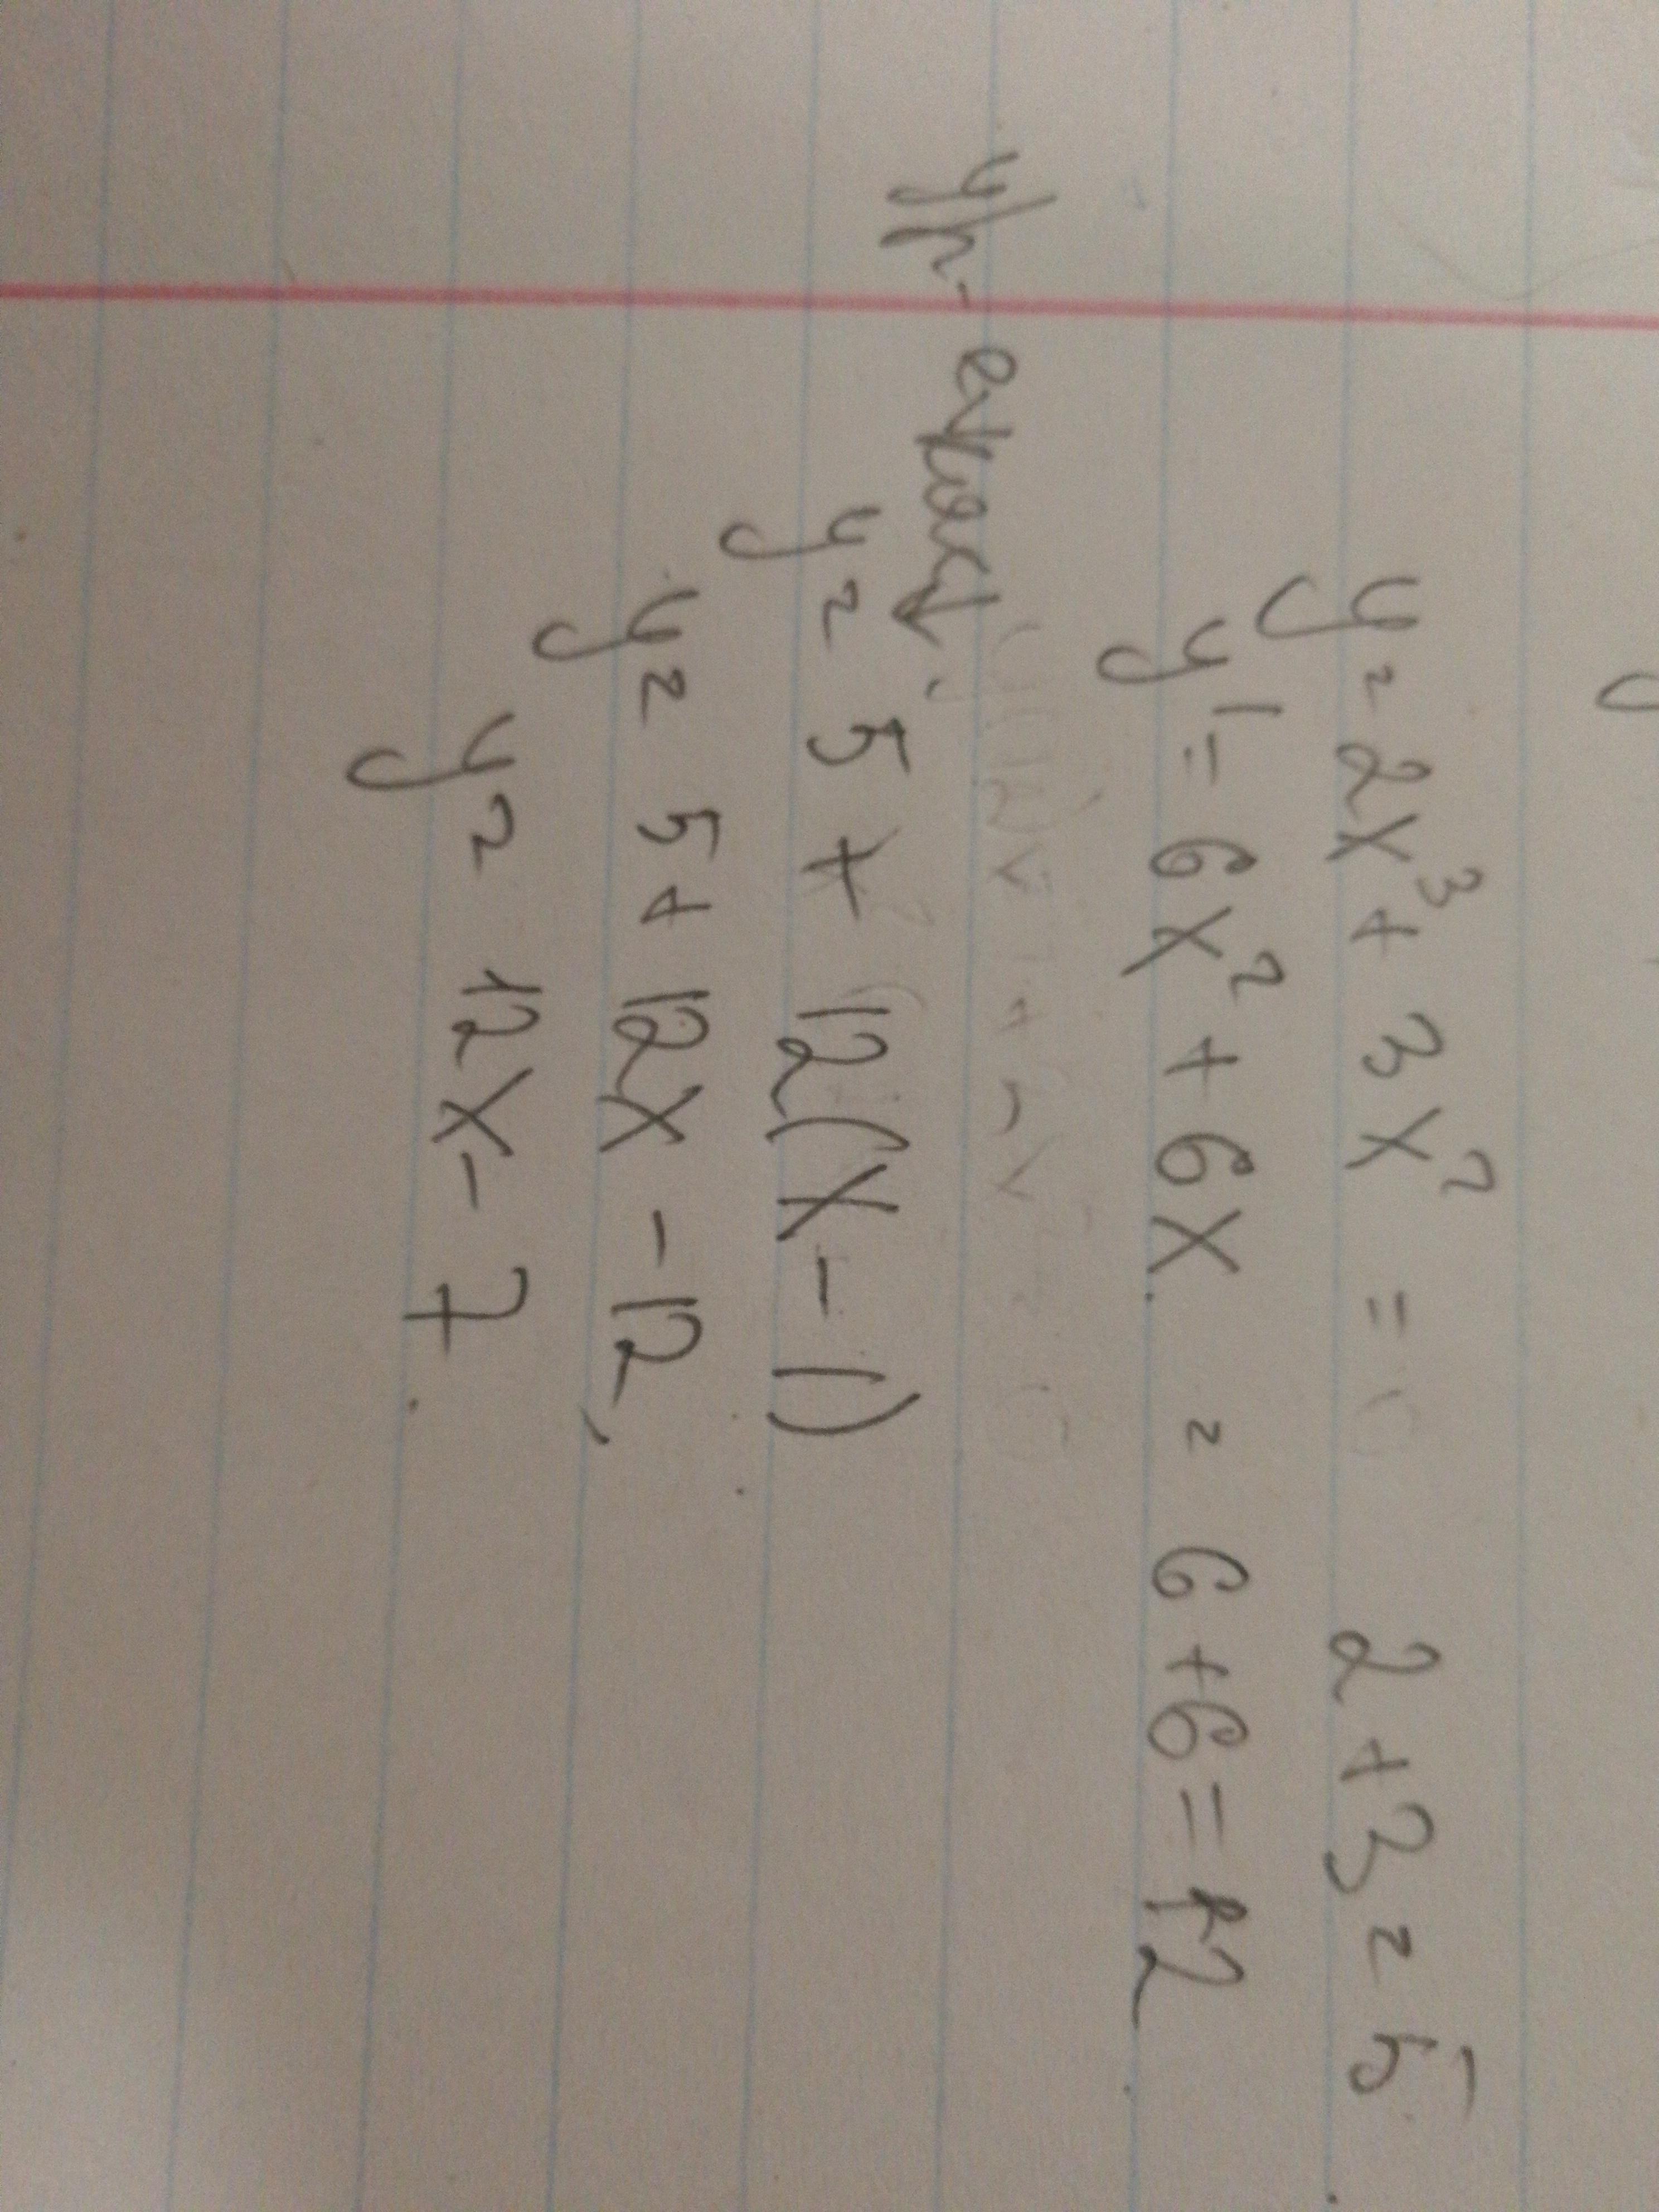 y = 2x³ + 3x² = 2 + 3 = 5
y' = 6x² + 6x = 6 + 6 = 12
y = 5 + 12(x - 1)
y = 5 + 12x - 12,
y = 12x - 7.